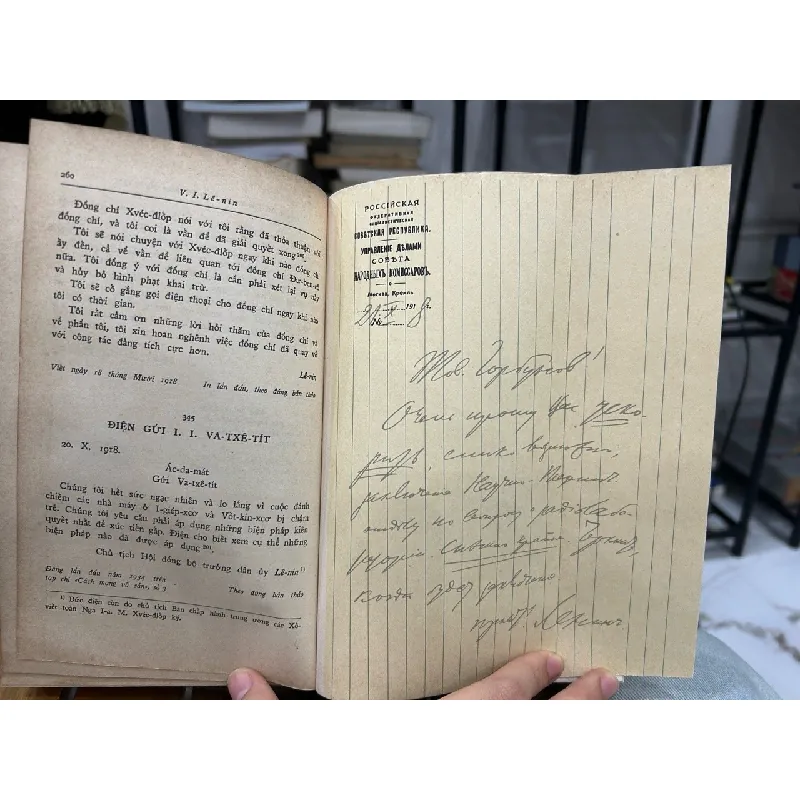 260
V. I. Lê-nin
Đồng chí Xvéc-đlốp nói với tôi rằng đã thỏa thuận với
đồng chí, và tôi coi là vấn đề đã giải quyết xong
Tôi sẽ nói chuyện với Xvéc-đlốp ngay khi nào đồng chí
ấy đến, cả về vấn đề liên quan tới đồng chí
nữa. Tôi đồng ý với đồng chí là cần phải xét lại vụ này
và hủy bỏ hình phạt khai trừ.
Tôi sẽ cố gắng gọi điện thoại cho đồng chí ngay khi nào
tôi có thời gian.
Tôi rất cảm ơn những lời hỏi thăm của đồng chí và
về phần tôi, tôi xin hoan nghênh việc đồng chí đã quay về
với công tác đảng tích cực hơn.
Lê-nin
Viết ngày 18 tháng Mười 1918
In lần đầu, theo đúng bản thảo
345
ĐIỆN GỬI I. I. VA-TXÊ-TÍT
20. X. 1918.
Ác-da-mát
Gửi Va-txê-tít
Chúng tôi hết sức ngạc nhiên và lo lắng về cuộc đánh
chiếm các nhà máy ở I-giép-xcơ và Vốt-kin-xcơ bị chậm
trễ. Chúng tôi yêu cầu phải áp dụng những biện pháp kiên
quyết nhất để xúc tiến gấp. Điện cho biết xem cụ thể những
biện pháp nào đã được áp dụng
Chủ tịch Hội đồng bộ trưởng dân ủy Lê-nin¹⁾
Đăng lần đầu năm 1934 trên
tạp chí «Cách mạng vô sản», số 3
Theo đúng bản thảo
¹⁾ Bức điện còn do chủ tịch Ban chấp hành trung ương các Xô-
viết toàn Nga I-a. M. Xvéc-đlốp ký.
РОССІЙСКАЯ
ФЕДЕРАТИВНАЯ
СОЦІАЛИСТИЧЕСКАЯ
СОВѢТСКАЯ РЕСПУБЛИКА.
УПРАВЛЕНІЕ ДѢЛАМИ
СОВѢТА
НАРОДНЫХЪ КОМИССАРОВЪ.
Москва, Кремль.
21 X 1918 г.
№
Тов. Горбунов!
Очень прошу Вас уско-
рить,
научно-
отделу по
когда
Ленин